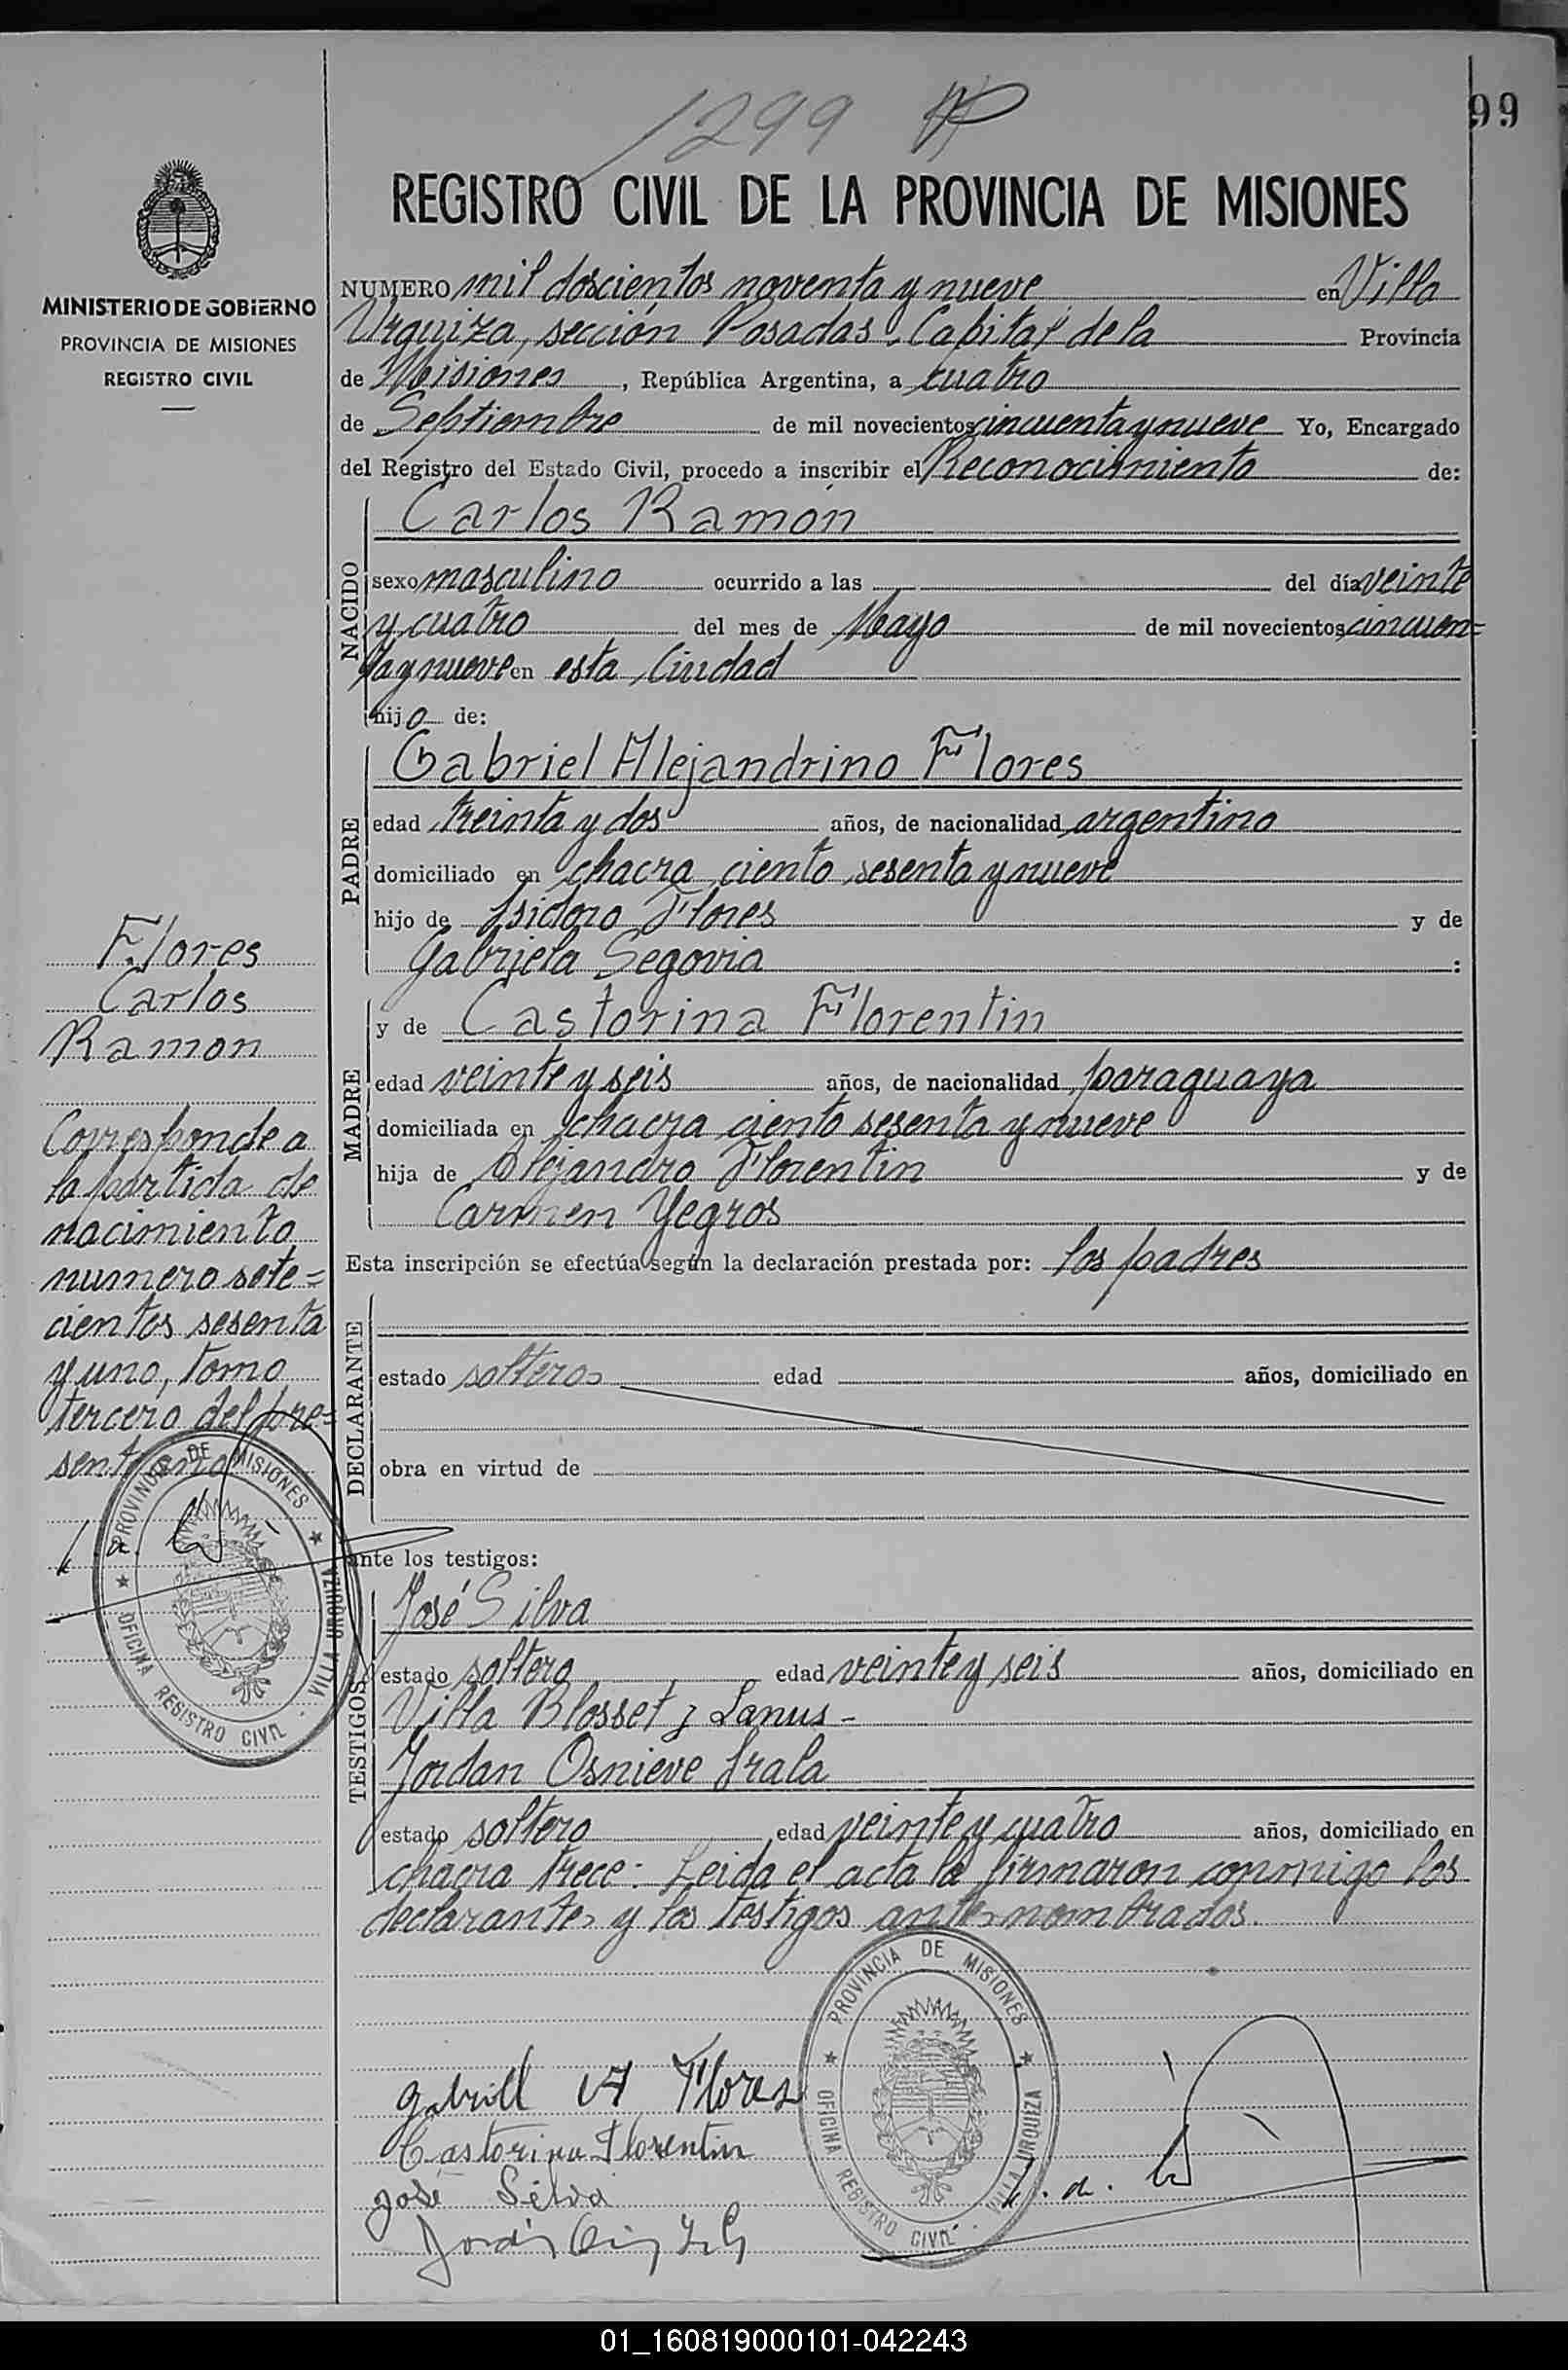 1299
99
REGISTRO CIVIL DE LA PROVINCIA DE MISIONES
MINISTERIO DE GOBIERNO
PROVINCIA DE MISIONES
REGISTRO CIVIL
NUMERO mil doscientos noventa y nueve en Villa
Urquiza, sección Posadas. Capital de la Provincia
de Misiones, República Argentina, a cuatro
de Septiembre de mil novecientos cincuenta y nueve Yo, Encargado
del Registro del Estado Civil, procedo a inscribir el Reconocimiento de:
NACIDO
Carlos Ramón
sexo masculino ocurrido a las del día veinte
y cuatro del mes de Mayo de mil novecientos cincuen=
ta y nueve en esta Ciudad
hijo de:
PADRE
Gabriel Alejandrino Flores
edad treinta y dos años, de nacionalidad argentino
domiciliado en chacra ciento sesenta y nueve
hijo de Isidoro Flores y de
Gabriela Segovia :
MADRE
y de Castorina Florentin
edad veinte y seis años, de nacionalidad paraguaya
domiciliada en chacra ciento sesenta y nueve
hija de Alejandro Florentin y de
Carmen Yegros
Esta inscripción se efectúa según la declaración prestada por: los padres
DECLARANTE
estado solteros edad años, domiciliado en
obra en virtud de
ante los testigos:
TESTIGOS
José Silva
estado soltero edad veinte y seis años, domiciliado en
Villa Blosset y Lanus -
Jordan Osnieve Irala
estado soltero edad veinte y cuatro años, domiciliado en
chacra trece: Leida el acta la firmaron conmigo los
declarantes y los testigos antes nombrados.
Flores
Carlos
Ramon
Corresponde a
la partida de
nacimiento
numero sete=
cientos sesenta
y uno, tomo
tercero del pre=
sente año
PROVINCIA DE MISIONES
OFICINA REGISTRO CIVIL - VILLA URQUIZA
gabriel A Flores
Castorina Florentin
José Silva
PROVINCIA DE MISIONES
OFICINA REGISTRO CIVIL - VILLA URQUIZA
01_160819000101-042243